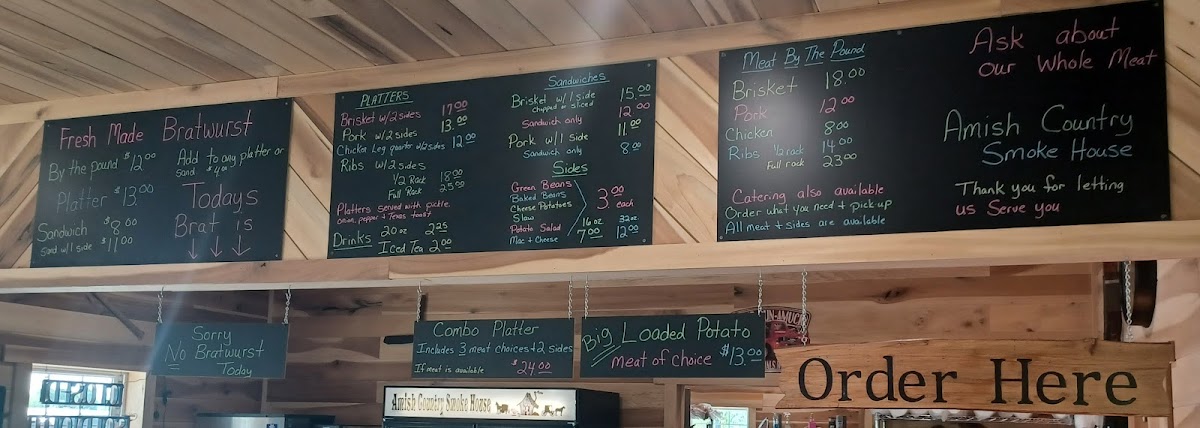 Fresh Made Bratwurst
By the pound $12.00
Platter $13.00
Sandwich $8.00
Sand. w/1 side $11.00
Add to any platter or
Sand. $4.00
Todays
Brat is
↓ ↓ ↓
PLATTERS
Brisket w/2 sides 17.00
Pork w/2 sides 13.00
Chicken Leg quarter w/2 sides 12.00
Ribs w/2 sides
1/2 Rack 18.00
Full Rack 25.00
Platters served with pickle,
onion, pepper + Texas toast
Drinks 20 oz 2.25
Iced Tea 2.00
Sandwiches
Brisket w/1 side 15.00
chopped or sliced
Sandwich only 12.00
Pork w/1 side 11.00
Sandwich only 8.00
Sides
Green Beans
Baked Beans
Cheese Potatoes
Slaw
Potato Salad
Mac + Cheese
3.00
each
16 oz 32 oz
7.00 12.00
Meat By The Pound
Brisket 18.00
Pork 12.00
Chicken 8.00
Ribs 1/2 rack 14.00
Full rack 23.00
Catering also available
Order what you need + pick up
All meat + sides are available
Ask about
our Whole Meat
Amish Country
Smoke House
Thank you for letting
us Serve you
Sorry
No Bratwurst
Today
Combo Platter
Includes 3 meat choices + 2 sides
If meat is available $24.00
Big Loaded Potato
Meat of Choice $13.00
Amish Country Smoke House
Order Here